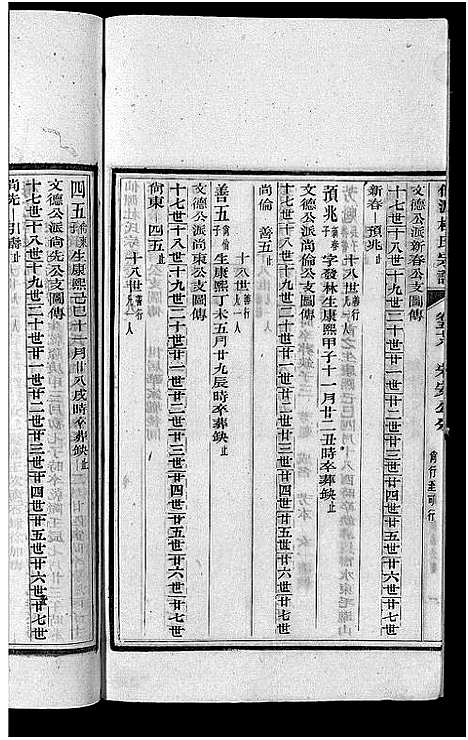 仙源杜氏宗譜
文德公派新春公支圖傳
十七世十八世十九世二十世廿一世廿二世廿三世廿四世廿五世廿六世廿七世
新春—預兆止
十八世善行一人
預兆新春子字發林生康熙甲子十一月廿二丑時卒葬缺止
文德公派尚倫公支圖傳
十七世十八世十九世二十世廿一世廿二世廿三世廿四世廿五世廿六世廿七世
尚倫—善五止
十八世善行一人
善五尚倫子生康熙丁未五月廿九辰時卒葬缺止
文德公派尚東公支圖傳
十七世十八世十九世二十世廿一世廿二世廿三世廿四世廿五世廿六世廿七世
尚東—四五止
十八世善行一人
四五尚東子生康熙己巳十一月廿八戌時卒葬缺止
文德公派尚先公支圖傳
十七世十八世十九世二十世廿一世廿二世廿三世廿四世廿五世廿六世廿七世
尚先—引壽止